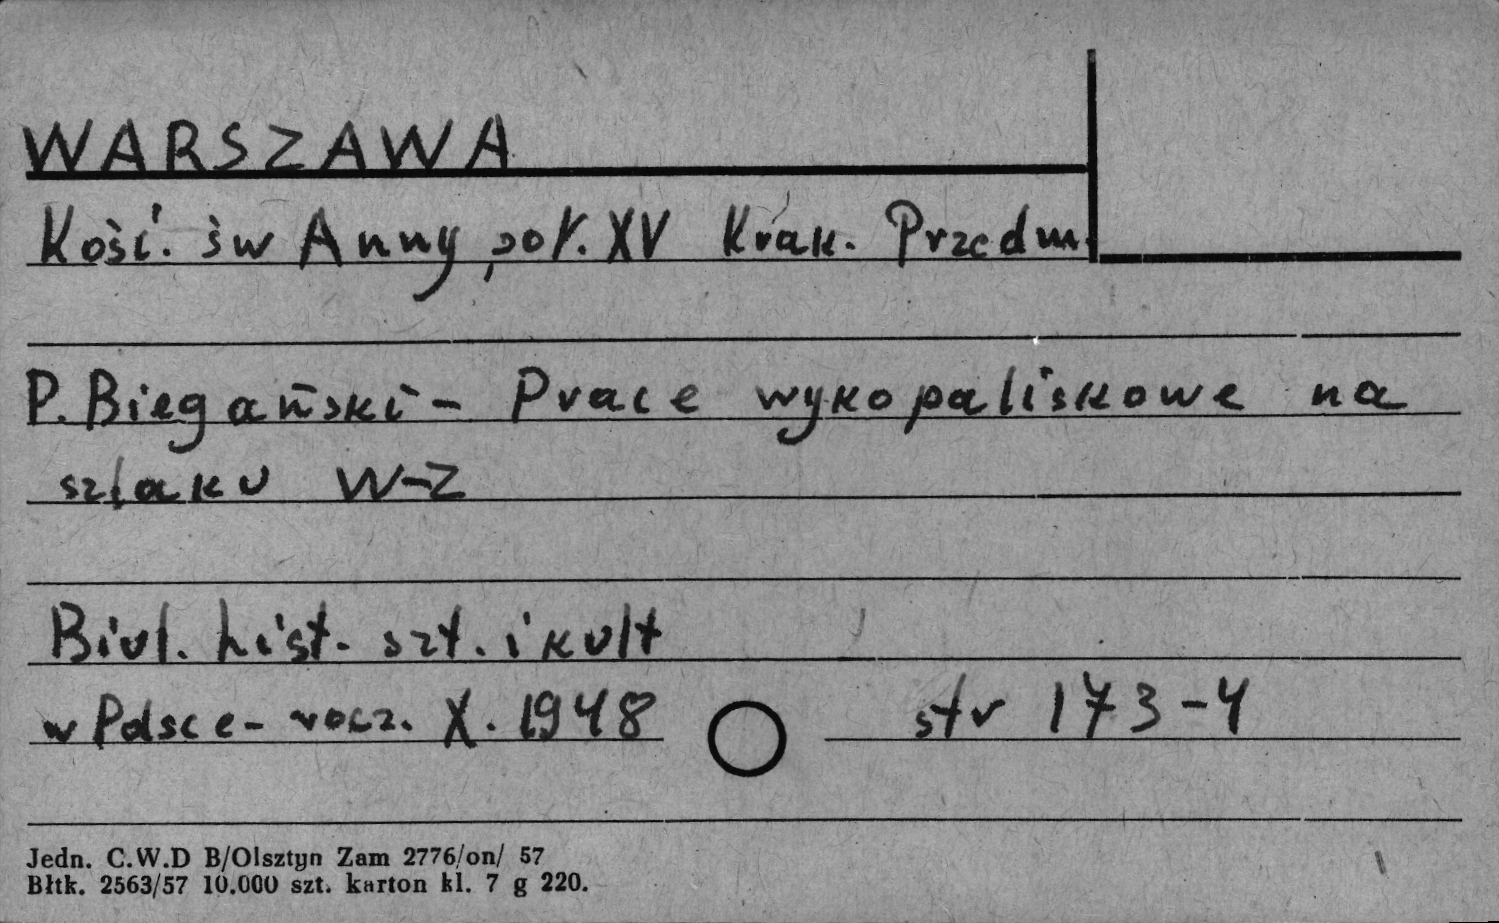 WARSZAWA
Kośc. św Anny poł. XV Krak. Przedm.
P. Biegański - Prace wykopaliskowe na
szlaku W-Z
Biul. hist. szt. i kult
w Polsce - rocz. X. 1948 str 173-4
Jedn. C.W.D B/Olsztyn Zam 2776/on/ 57
Błtk. 2563/57 10.000 szt. karton kl. 7 g 220.